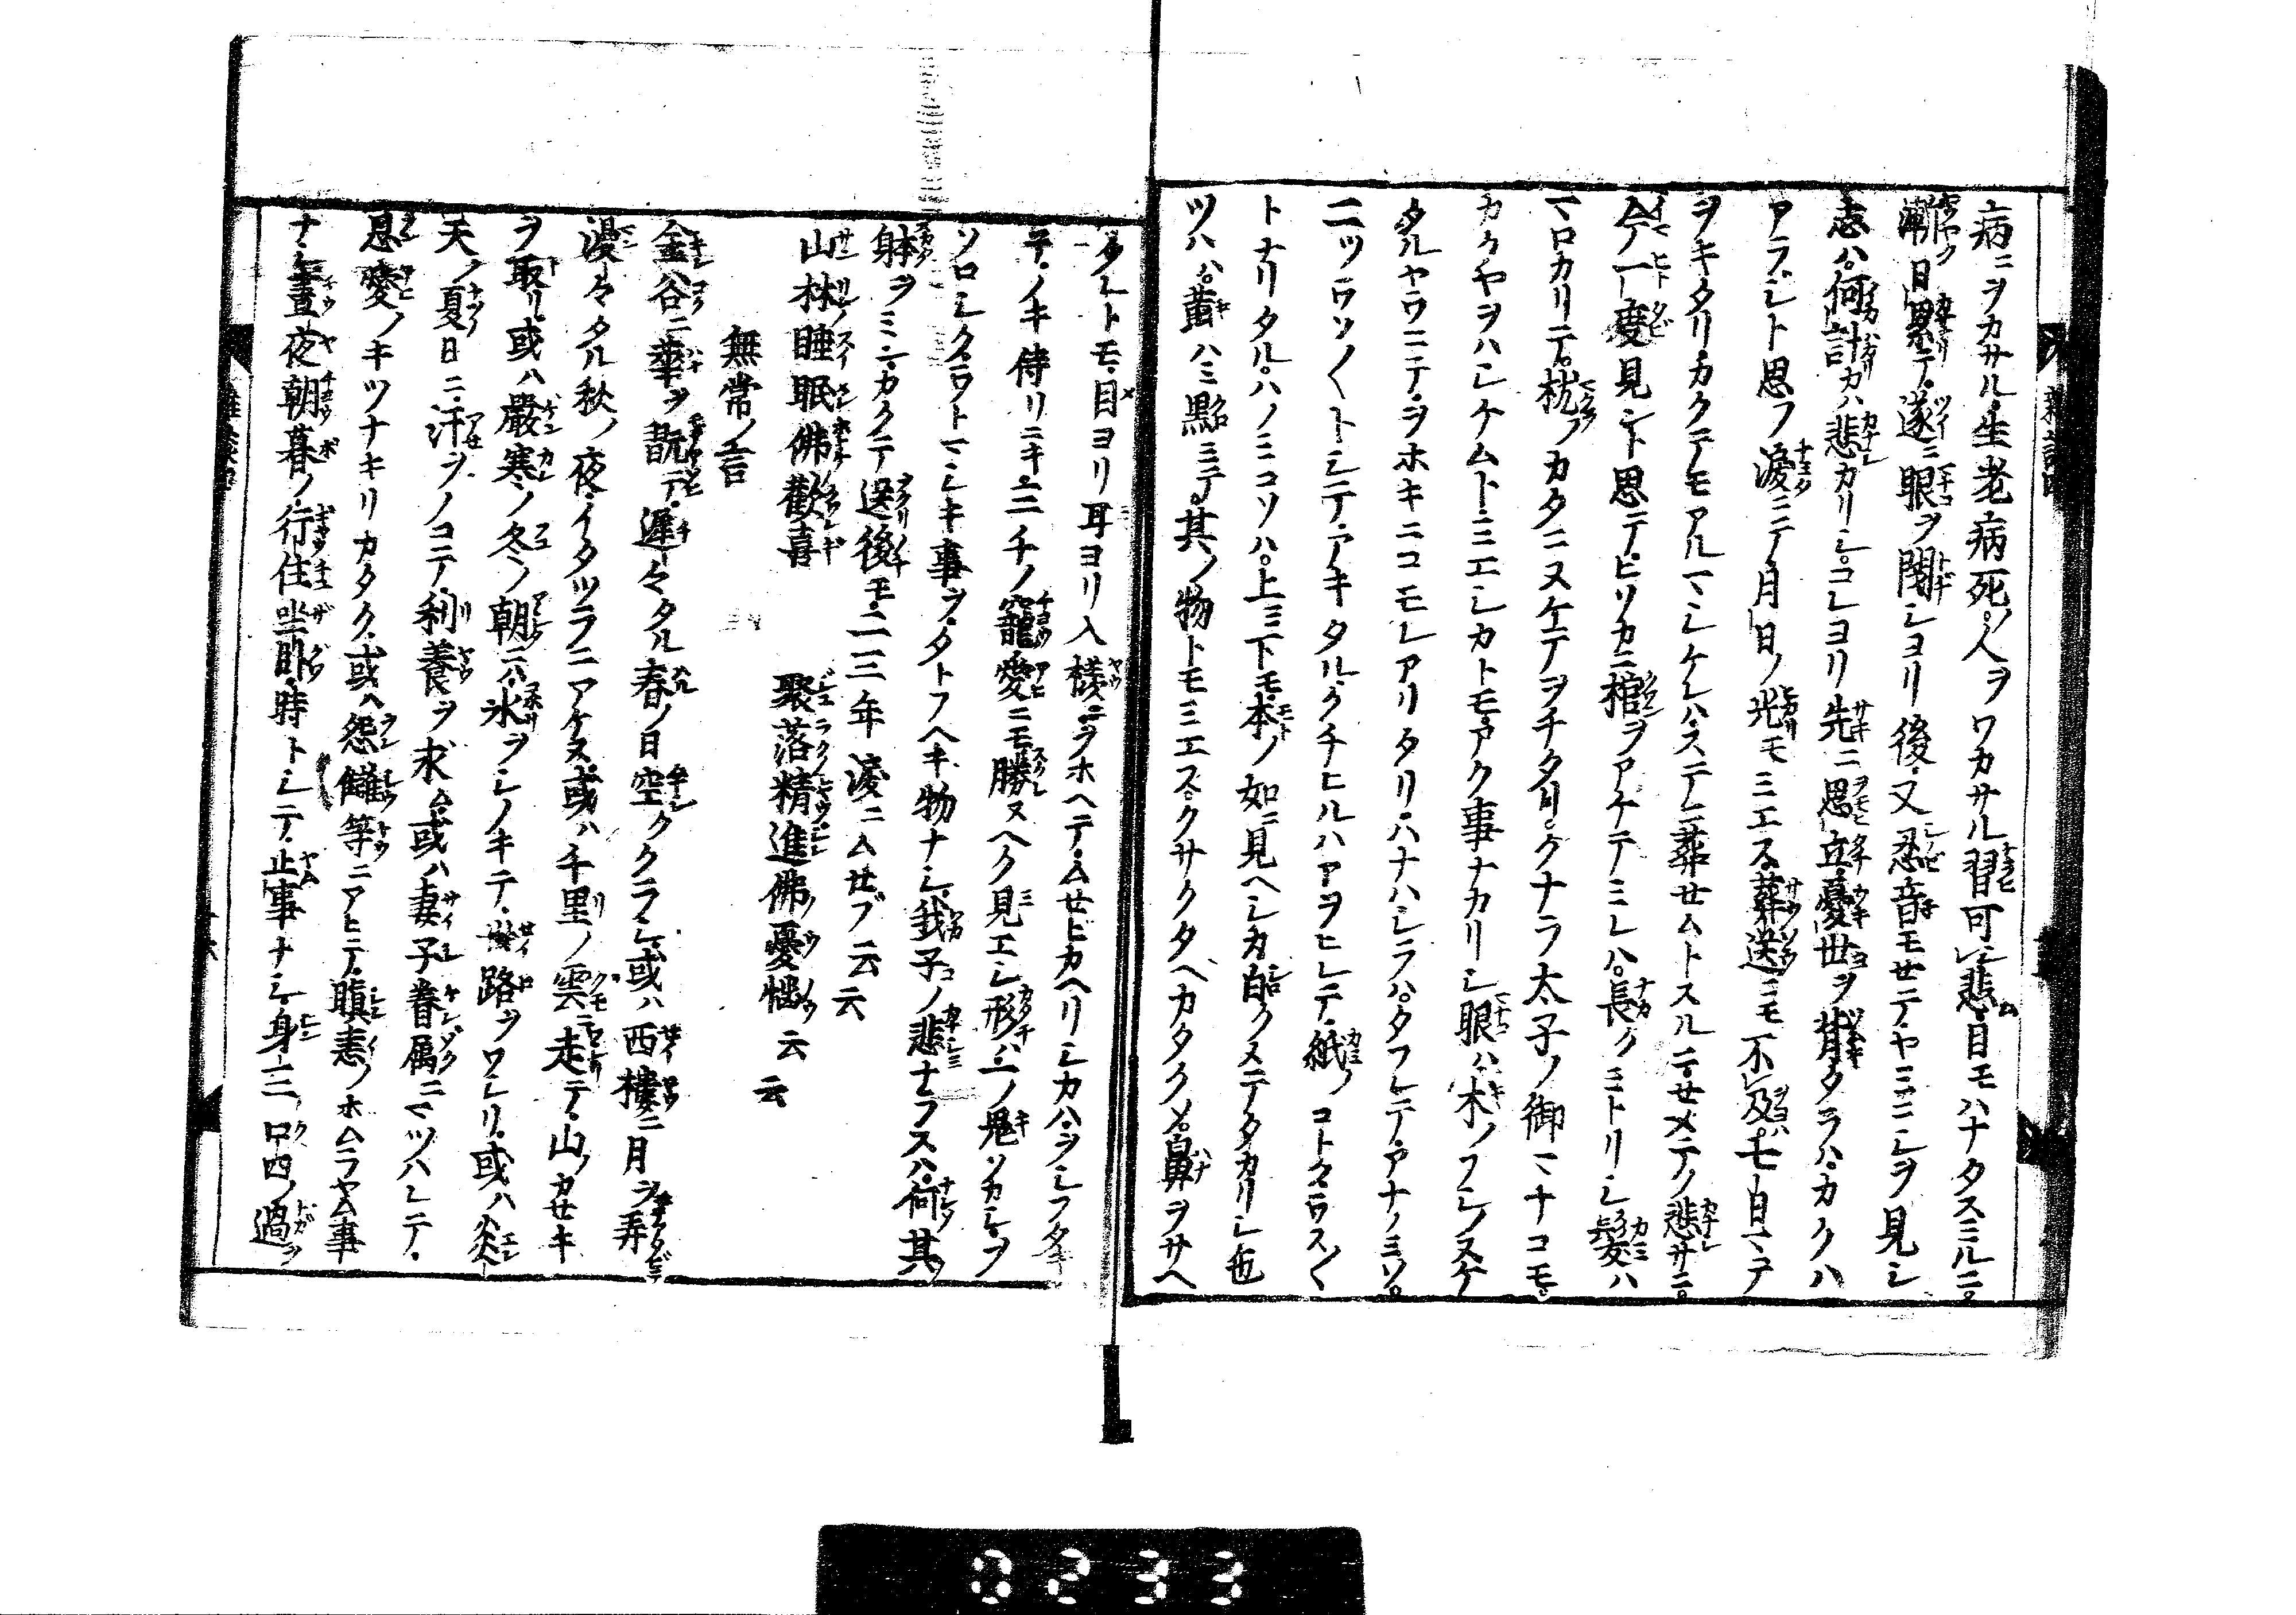 病ニヲカサル。生老病死ノ人ヲワカサル習可レ悲ム。目モハナタスミルニ。
漸日累テ。遂ニ眼ヲ閇シヨリ後。又忍音モセテヤミニシヲ見シ
志ハ。何計カハ悲カリシ。コレヨリ先ニ思立。憂世ヲ背タラハ。カクハ
アラシト思フ。涙ニテ月日ノ光モミエス。葬送ニモ不及。七日マテ
ヲキタリ。カクテモアルマシケレハ。ステニ葬セムトスルニ。セメテノ悲サニ。
今一度見ント思テ。ヒソカニ棺ヲアケテミレハ。長クミトリシ髪ハ
マロカリテ。枕ノカタニヌケテヲチタリ。クナラ太子ノ御マナコモ。
カクヤヲハシケムトミエシカトモ。アク事ナカリシ眼ハ。木ノフシノヌケ
タルヤウニテ。ヲホキニコモレアリタリ。ハナハシラハ。タフレテ。アナノミソ。
二ツウソ〱トシテ。アキタル。クチヒルハアヲヒレテ。紙ノコトクウス〱
トナリタル。ハノミコソハ。上ミ下モ。本ノ如ニ見ヘシカ。白クステタカリシ也
ツハハ。黄ハミ黯ミテ。其ノ物トモミエス。クサクタヘカタクメ。鼻ヲサヘ
タレトモ。目ヨリ耳ヨリ入様ニヲホヘテ。ムセヒカヘリシカハ。ヲシフタキ
テ。ノキ侍リニキ。三チノ寵愛ニモ勝ヌヘク見エシ形ハ。一ノ鬼ソカシ。ヲ
ソロシクウトマシキ事ヲ。タトフヘキ物ナシ。我子ノ悲ナラスハ。何其ノ
躰ヲミン。カクテ送後モ。二三年涙ニムセブ云云
山林睡眠佛歡喜　聚落精進佛憂惱云云
無常ノ言
金谷ニ華ヲ翫テ。遲々タル春ノ日空ククラシ。或ハ西樓ニ月ヲ弄
漫々タル秋ノ夜イタツラニアケヌ。或ハ千里ノ雲ニ走テ。山ノカセキ
ヲ取リ。或ハ嚴寒ノ冬ノ朝ニハ。氷ヲシノキテ。世路ヲワシリ。或ハ炎
天ノ夏日ニ。汗ヲノコテ。利養ヲ求ム。或ハ妻子眷属ニマツハレテ。
恩愛ノキツナキリカタク。或ハ怨讎等ニアヒテ。瞋恚ノホムラヤム事
ナシ。晝夜朝暮ノ。行住坐臥。時トシテ。止事ナシ。身三口四ノ過ヲ
0233